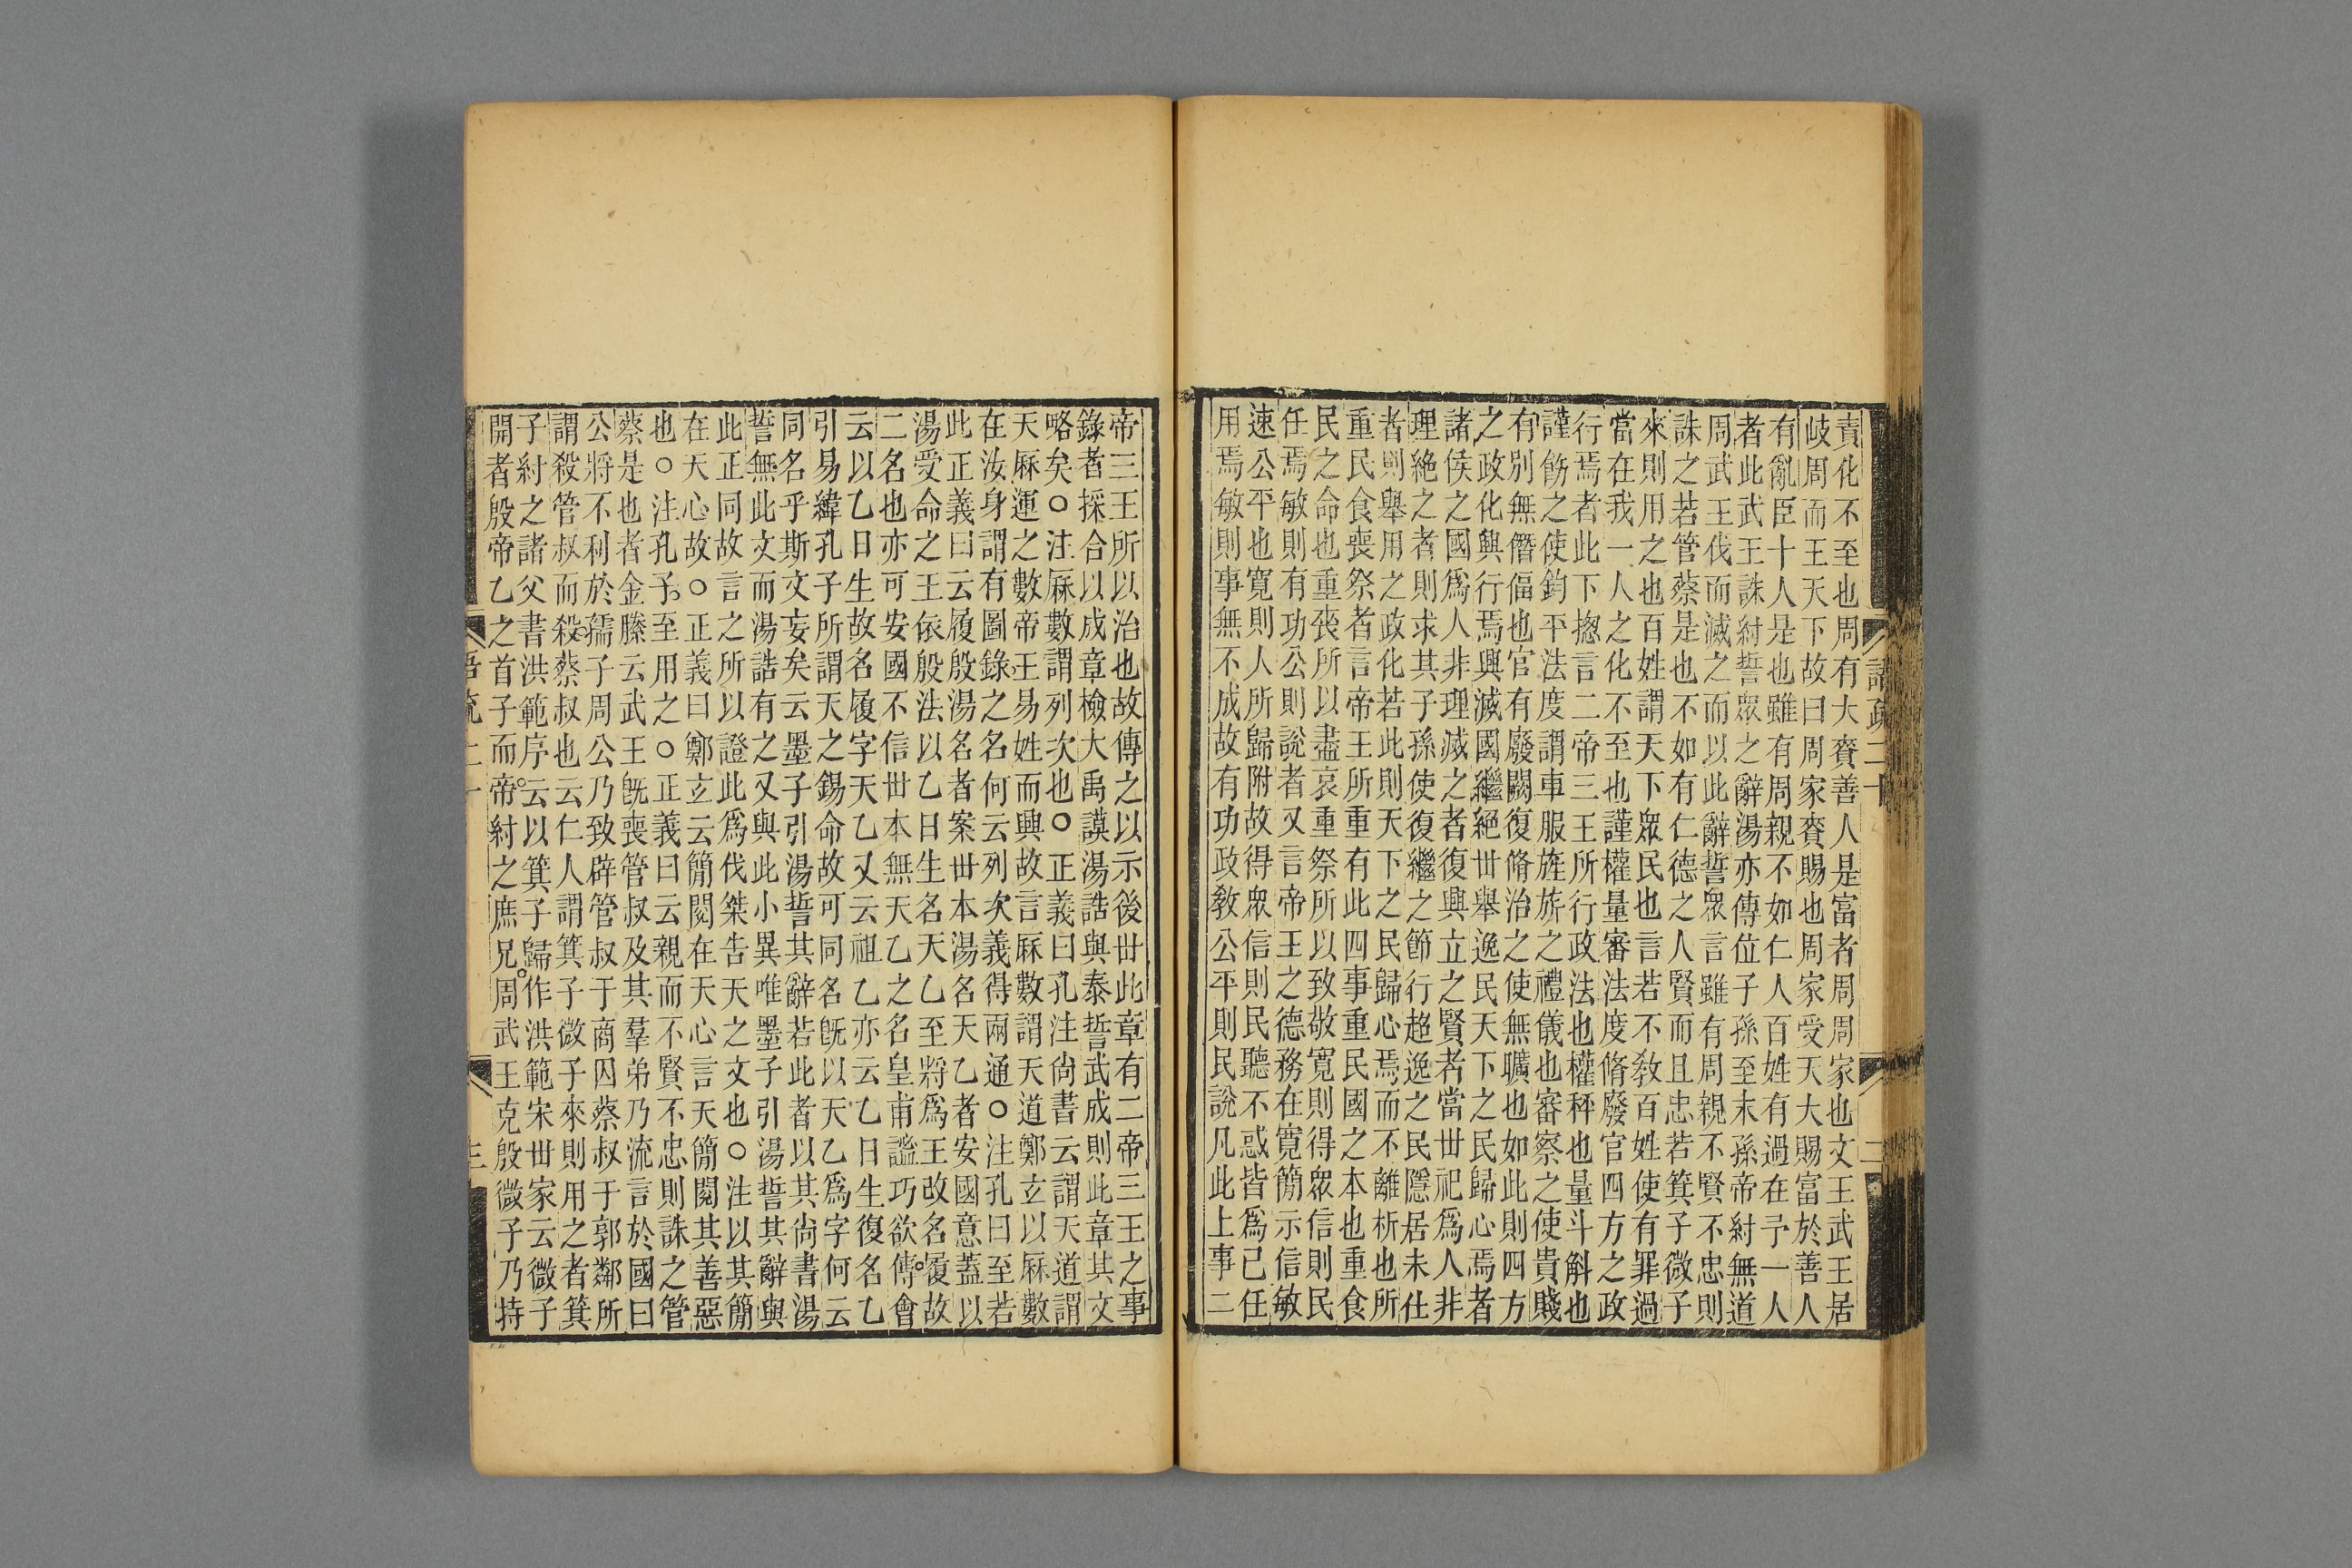 語疏二十
二
責化不至也周有大賚善人是富者周周家也文王武王居
岐周而王天下故曰周家賚賜也周家受天大賜富於善人
有亂臣十人是也雖有周親不如仁人百姓有過在予一人
者此武王誅紂誓眾之辭湯亦傳位子孫至末孫帝紂無道
周武王伐而滅之而以此辭誓眾言雖有周親不賢不忠則
誅之若管蔡是也不如有仁德之人賢而且忠若箕子微子
來則用之也百姓謂天下眾民也言若不敎百姓使有罪過
當在我一人之化不至也謹權量審法度脩廢官四方之政
行焉者此下揔言二帝三王所行政法也權秤也量斗斛也
謹飭之使鈞平法度謂車服旌旂之禮儀也審察之使貴賤
有別無僭偪也官有廢闕復脩治之使無曠也如此則四方
之政化興行焉興滅國繼絕丗舉逸民天下之民歸心焉者
諸侯之國爲人非理滅之者復興立之賢者當丗祀爲人非
理絕之者則求其子孫使復繼之節行超逸之民隱居未仕
者則舉用之政化若此則天下之民歸心焉而不離析也所
重民食喪祭者言帝王所重有此四事重民國之本也重食
民之命也重喪所以盡哀重祭所以致敬寬則得眾信則民
任焉敏則有功公則說者又言帝王之德務在寬簡示信敏
速公平也寬則人所歸附故得眾信則民聽不惑皆爲己任
用焉敏則事無不成故有功政敎公平則民說凡此上事二
帝三王所以治也故傳之以示後丗此章有二帝三王之事
錄者採合以成章檢大禹謨湯誥與泰誓武成則此章其文
略矣○注厤數謂列次也○正義曰孔注尙書云謂天道謂
天厤運之數帝王易姓而興故言厤數謂天道鄭玄以厤數
在汝身謂有圖錄之名何云列次義得兩通○注孔曰至若
此正義曰云履殷湯名者案丗本湯名天乙者安國意蓋以
湯受命之王依殷法以乙日生名天乙至將爲王改名履故
二名也亦可安國不信丗本無天乙之名皇甫謐巧欲傳會
云以乙日生故名履字天乙又云祖乙亦云乙日生復名乙
引易緯孔子所謂天之錫命故可同名旣以天乙爲字何云
同名乎斯文妄矣云墨子引湯誓其辭若此者以其尙書湯
誓無此文而湯誥有之又與此小異唯墨子引湯誓其辭與
此正同故言之所以證此爲伐桀告天之文也○注以其簡
在天心故○正義曰鄭玄云簡閱在天心言天簡閱其善惡
也○注孔子至用之○正義曰云親而不賢不忠則誅之管
蔡是也者金縢云武王旣喪管叔及其羣弟乃流言於國曰
公將不利於孺子周公乃致辟管叔于商囚蔡叔于郭鄰所
謂殺管叔而殺蔡叔也云仁人謂箕子微子來則用之者箕
子紂之諸父書洪範序云以箕子歸作洪範宋丗家云微子
開者殷帝乙之首子而帝紂之庶兄周武王克殷微子乃持